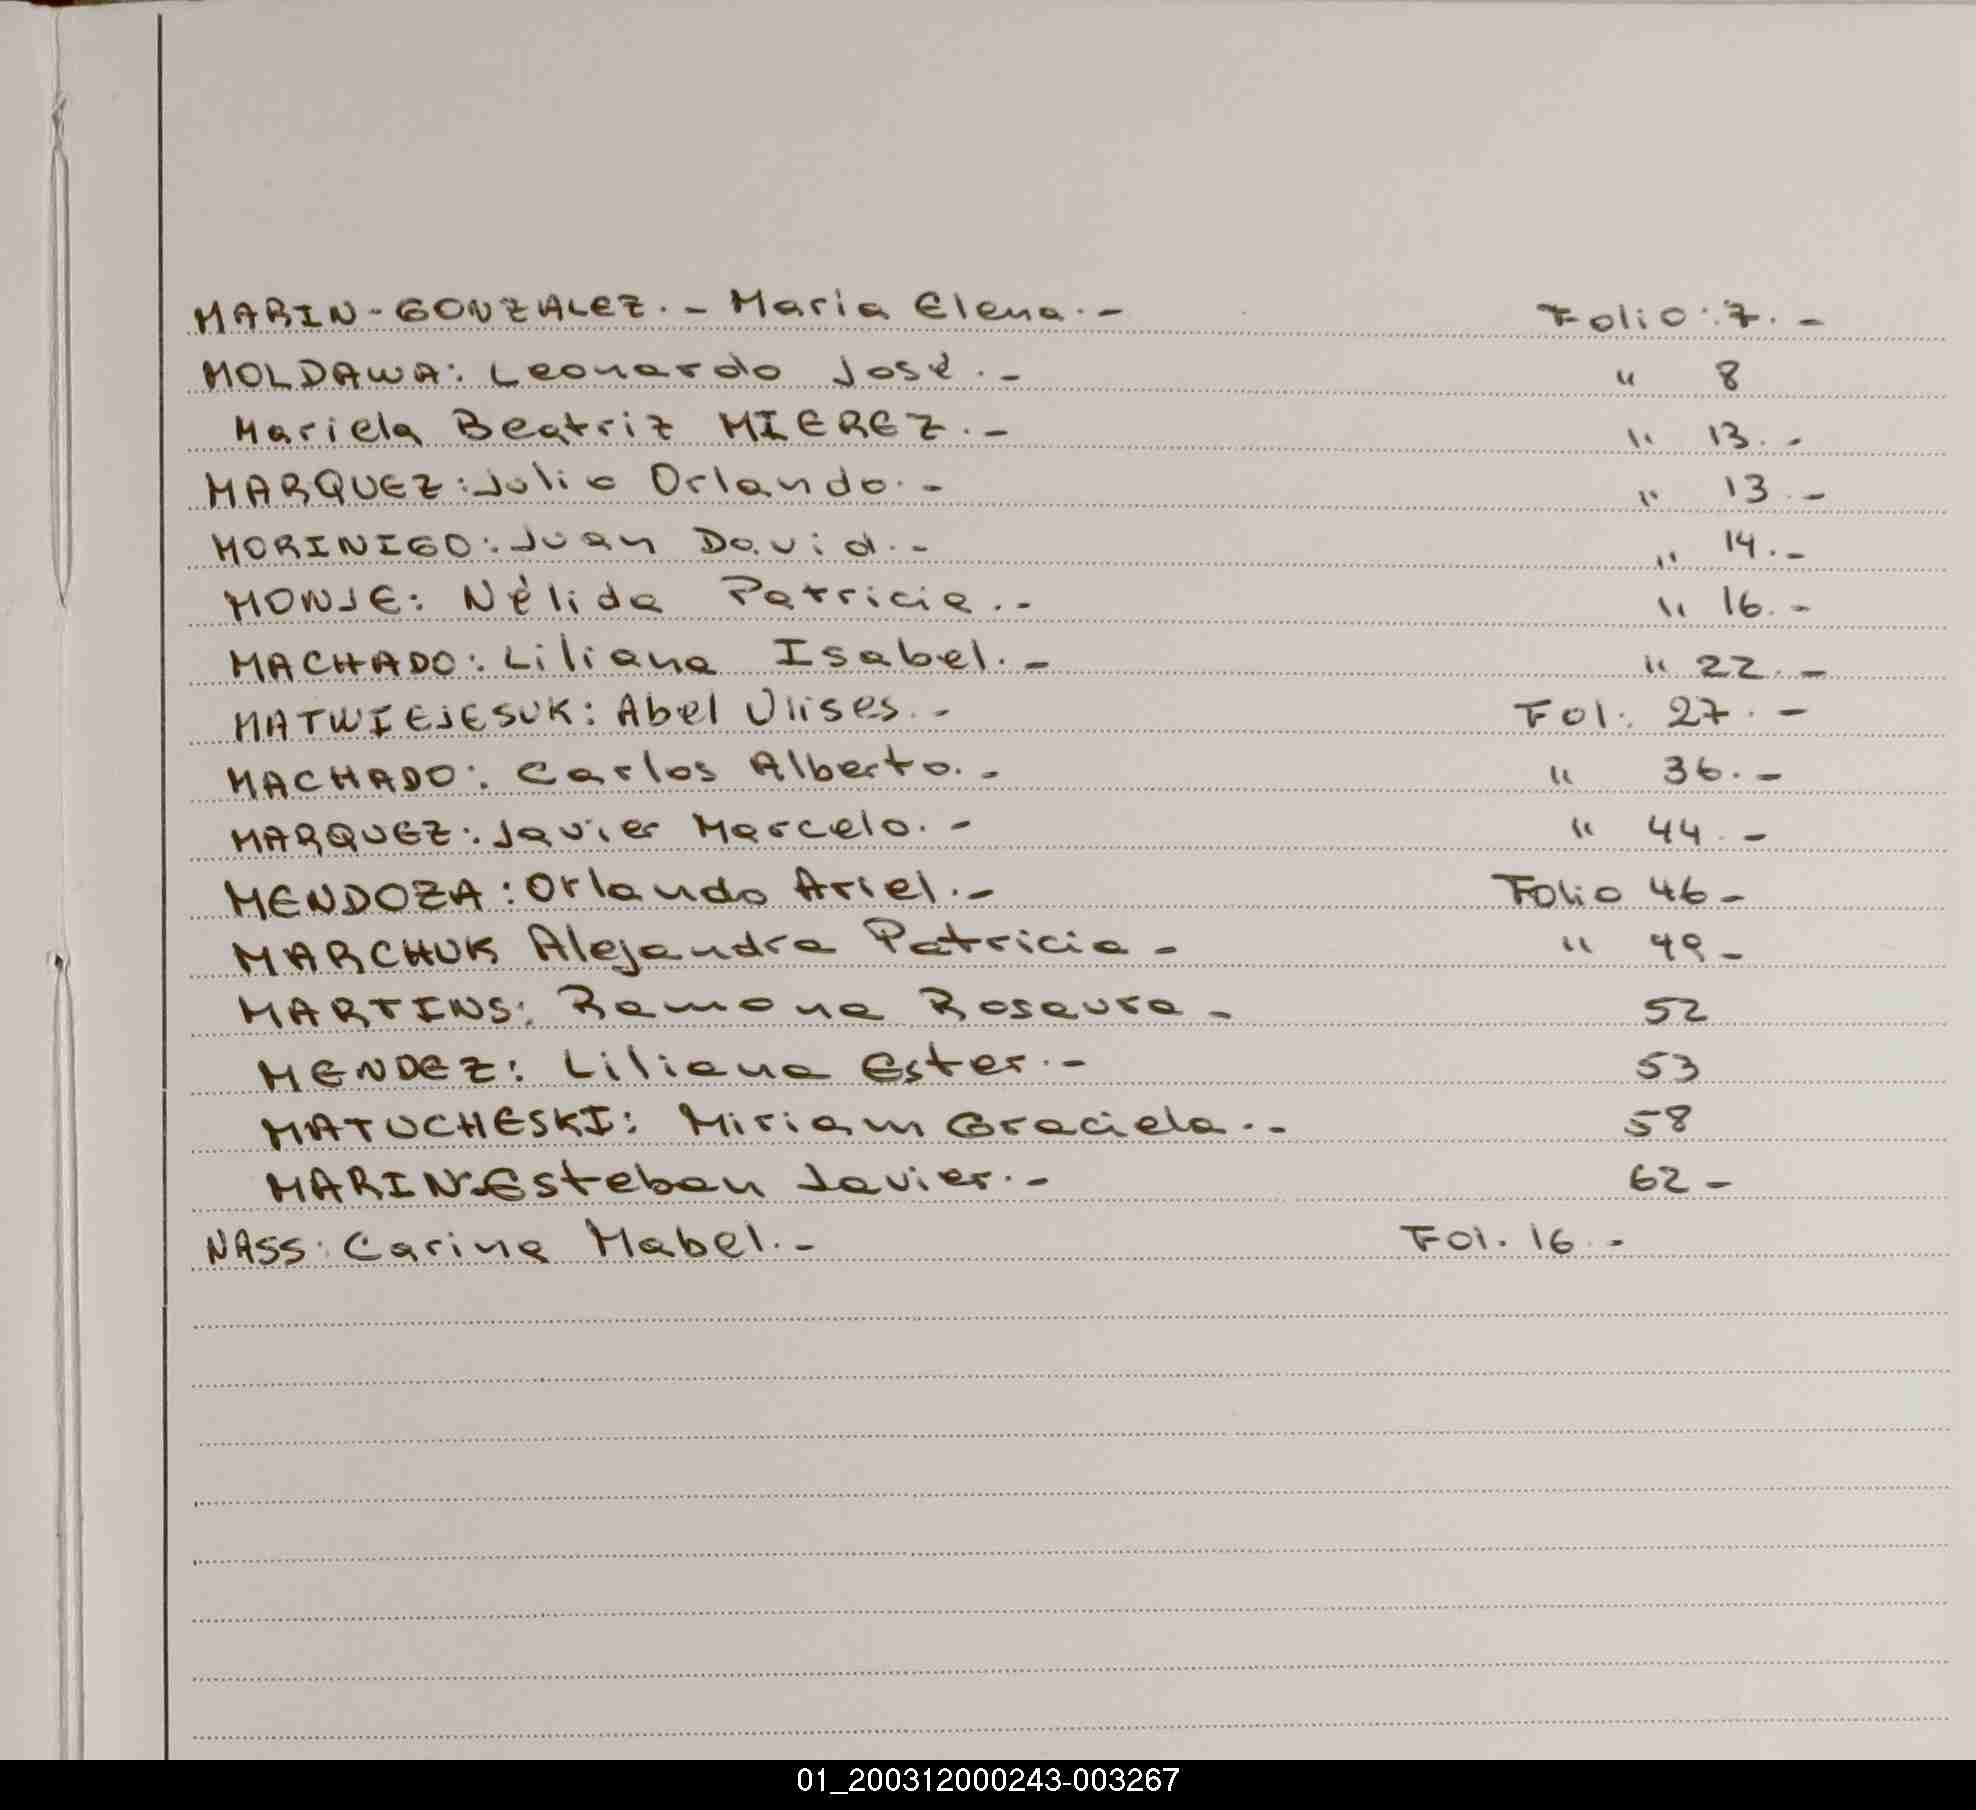 MARIN-GONZALEZ.- Maria Elena.- Folio: 7.-
MOLDAWA: Leonardo José.- " 8
Mariela Beatriz MIEREZ.- " 13.-
MARQUEZ: Julio Orlando.- " 13.-
MORINIGO: Juan David.- " 14.-
MONJE: Nélida Patricia.- " 16.-
MACHADO: Liliana Isabel.- " 22.-
MATWIEJESUK: Abel Ulises.- Fol: 27.-
MACHADO: Carlos Alberto.- " 36.-
MARQUEZ: Javier Marcelo.- " 44.-
MENDOZA: Orlando Ariel.- Folio 46-
MARCHUK Alejandra Patricia- " 49-
MARTINS: Ramona Rosaura- 52
MENDEZ: Liliana Ester.- 53
MATUCHESKI: Miriam Graciela.- 58
MARIN-Esteban Javier.- 62-
NASS: Carina Mabel.- Fol. 16.-
01_200312000243-003267